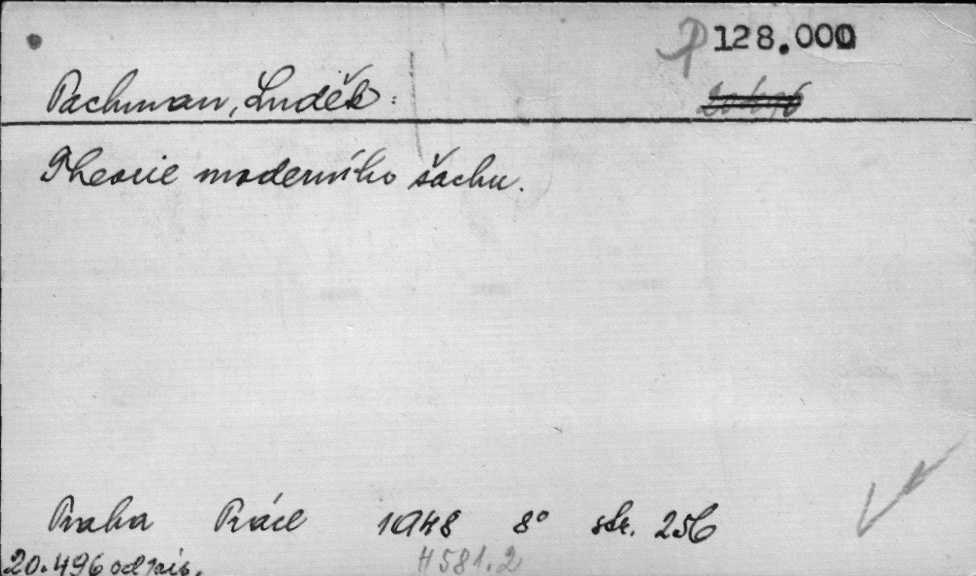 P 128.000
Pachman, Luděk:
Theorie moderního šachu.
Praha Práce 1948 8° str. 256
20.496 odpis.
H 581.2